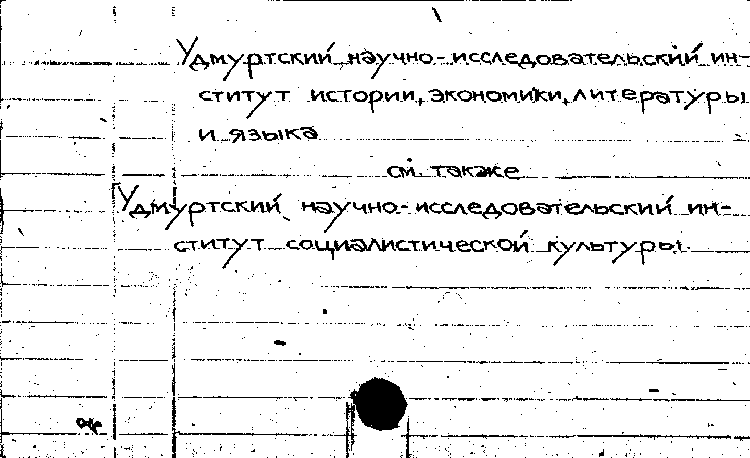 Удмуртский научно-исследовательский ин-
ститут истории, экономики, литературы
и языка
см. также
Удмуртский научно-исследовательский ин-
ститут социалистической культуры.